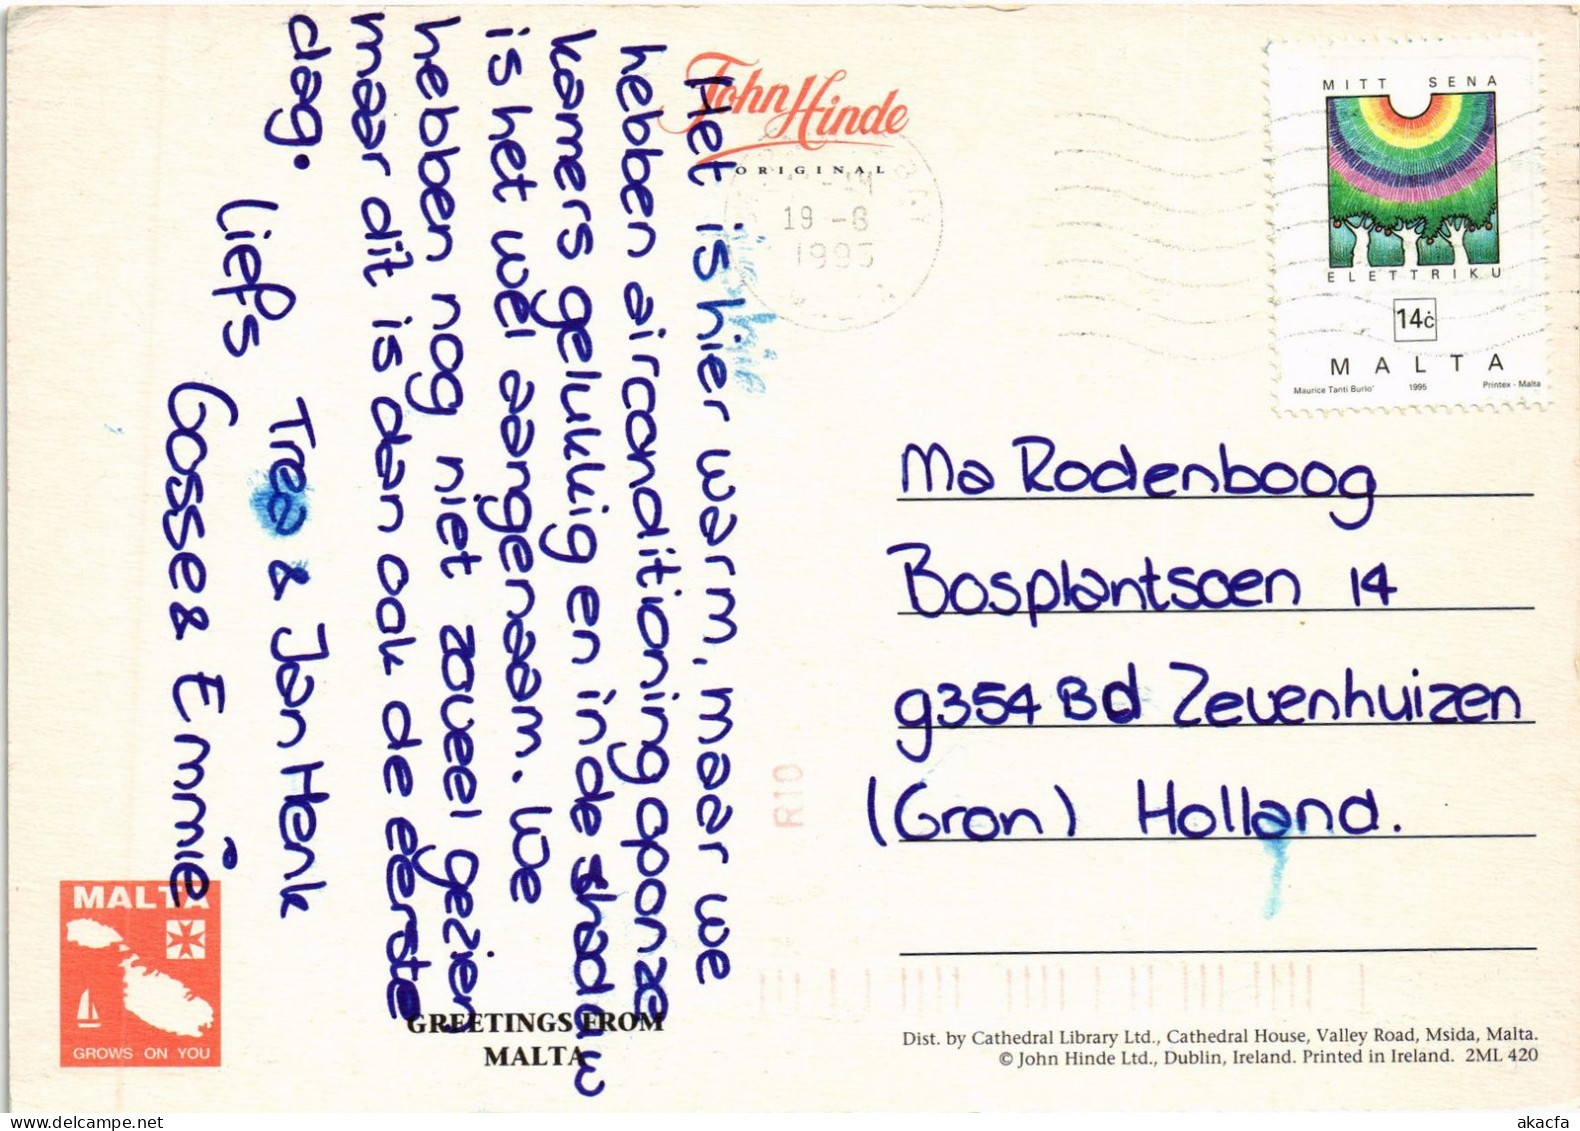 Het is hier warm, maar we
hebben airconditioning op onze
kamers gelukkig en in de shadow
is het wel aangenaam. We
hebben nog niet zoveel gezien
maar dit is dan ook de eerste
dag.
Liefs
Trea & Jan Henk
Gosse & Emmie
John Hinde
ORIGINAL
19 -8
1995
MITT SENA
ELETTRIKU
14ċ
MALTA
Maurice Tanti Burlo' 1995 Printex - Malta
Ma Rodenboog
Bosplantsoen 14
9354 Bd Zevenhuizen
(Gron) Holland.
R10
MALTA
GROWS ON YOU
GREETINGS FROM
MALTA
Dist. by Cathedral Library Ltd., Cathedral House, Valley Road, Msida, Malta.
© John Hinde Ltd., Dublin, Ireland. Printed in Ireland. 2ML 420
akacfa